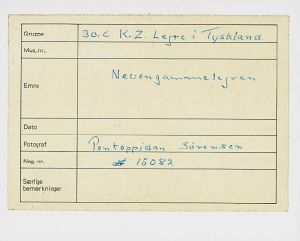 Gruppe 30.c. K.Z. Lejre i Tyskland
Mus.nr.
Emne Neuengammelejren
Dato
Fotograf Pontoppidan Sørensen
Neg. nr. 15082
Særlige
bemærkninger